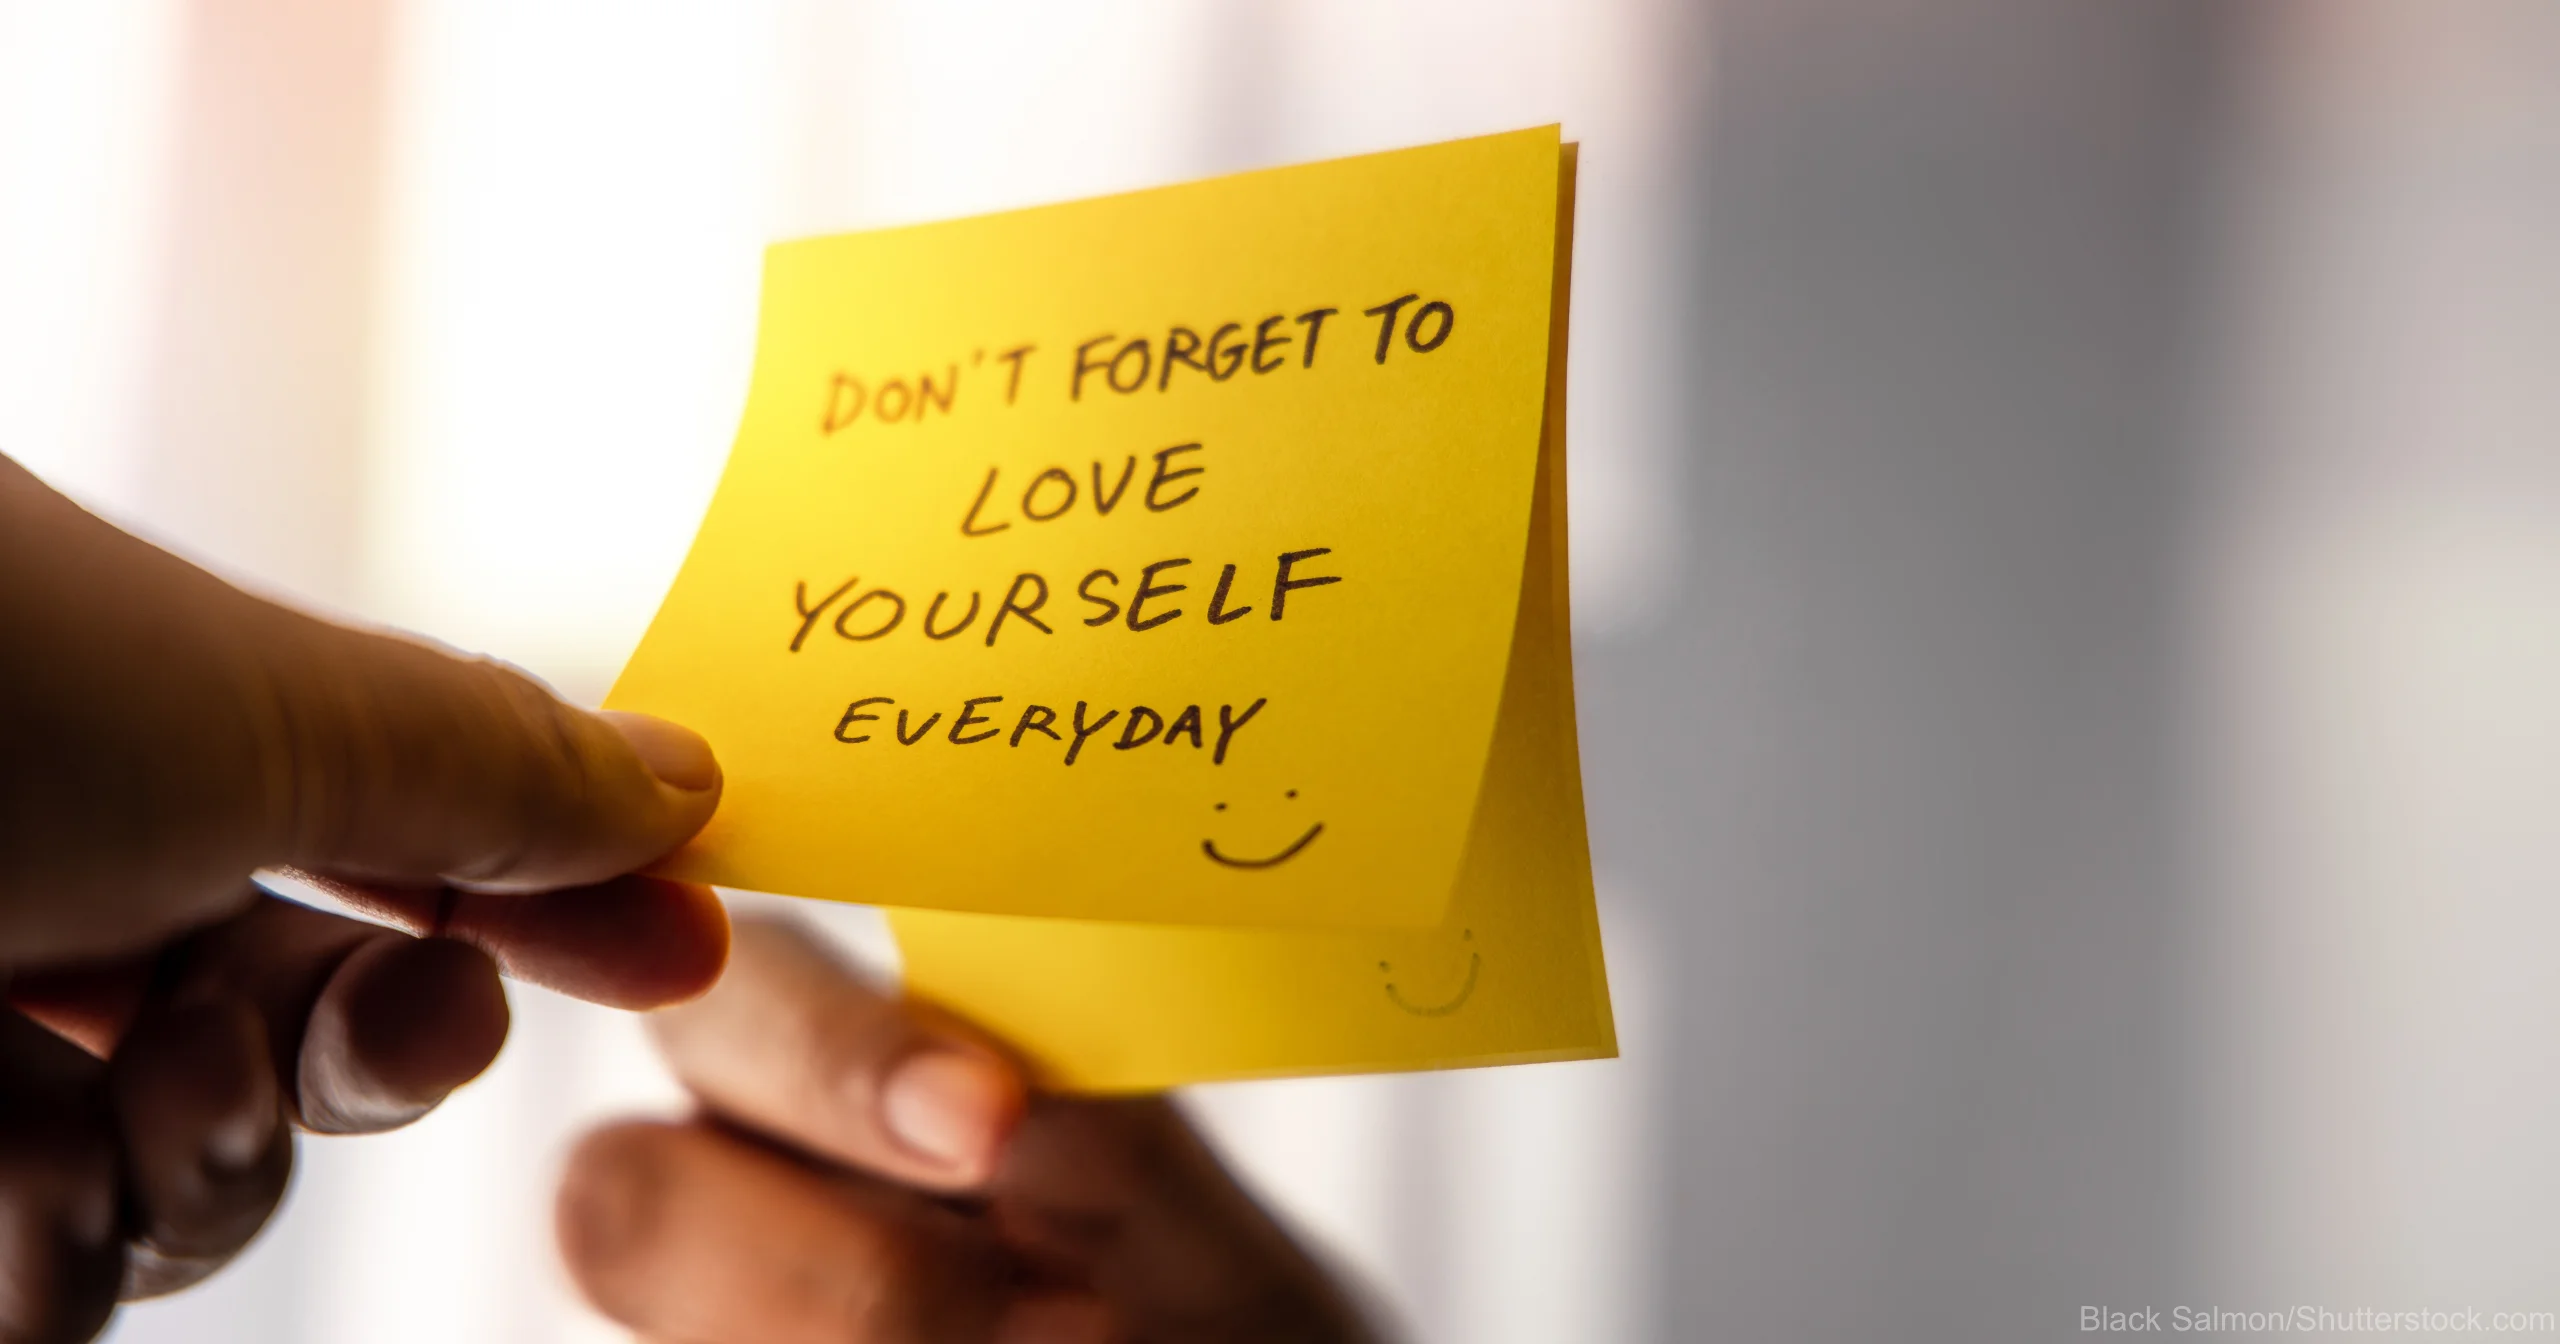 DON'T FORGET TO
LOVE
YOURSELF
EVERYDAY
Black Salmon/Shutterstock.com